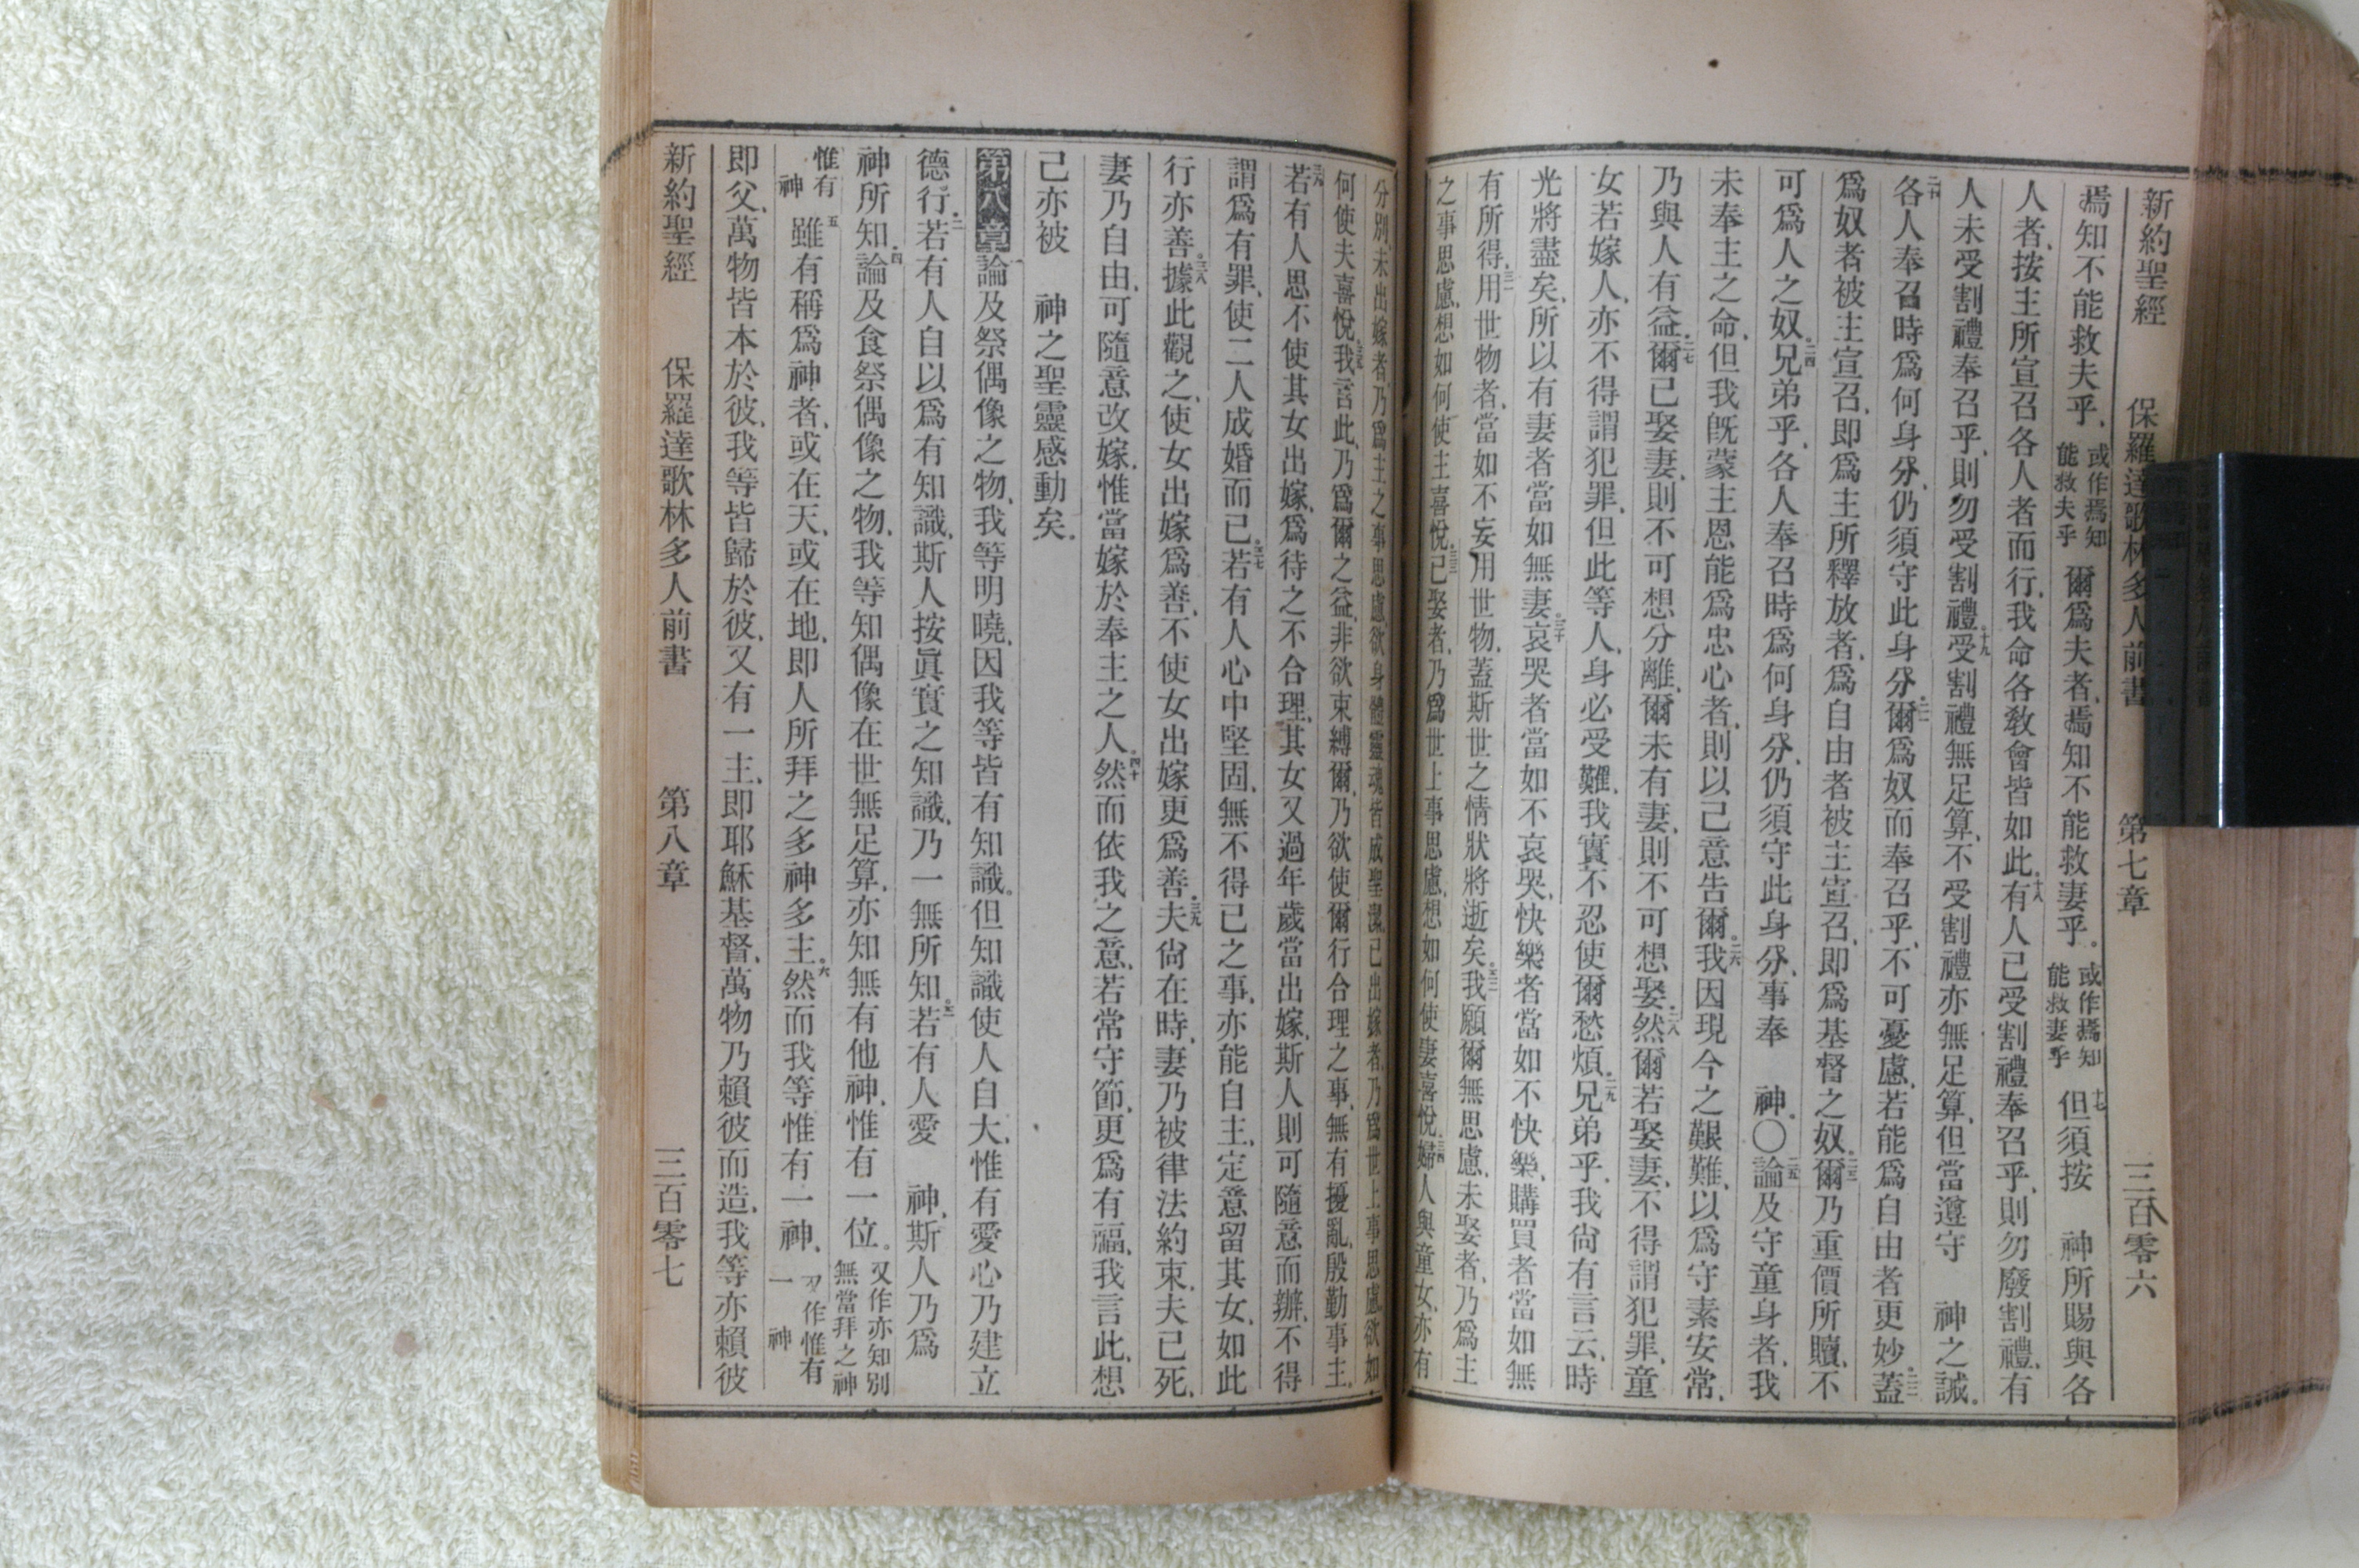 新約聖經　保羅達歌林多人前書　第七章　三百零六
焉知不能救夫乎、或作焉知能救夫乎爾爲夫者、焉知不能救妻乎。或作焉知能救妻乎十七但須按　神所賜與各
人者、按主所宣召各人者而行、我命各敎會皆如此。十八有人已受割禮奉召乎、則勿廢割禮、有
人未受割禮奉召乎、則勿受割禮。十九受割禮無足算、不受割禮亦無足算、但當遵守　神之誡。
二十各人奉召時爲何身分、仍須守此身分。二一爾爲奴而奉召乎、不可憂慮、若能爲自由者更妙。二二蓋
爲奴者被主宣召、卽爲主所釋放者、爲自由者被主宣召、卽爲基督之奴。二三爾乃重價所贖、不
可爲人之奴。二四兄弟乎、各人奉召時爲何身分、仍須守此身分、事奉　神。〇二五論及守童身者、我
未奉主之命、但我旣蒙主恩能爲忠心者、則以己意告爾。二六我因現今之艱難、以爲守素安常、
乃與人有益。二七爾已娶妻、則不可想分離、爾未有妻、則不可想娶。二八然爾若娶妻、不得謂犯罪、童
女若嫁人、亦不得謂犯罪、但此等人、身必受難、我實不忍使爾愁煩。二九兄弟乎、我尙有言云、時
光將盡矣、所以有妻者當如無妻。三十哀哭者當如不哀哭、快樂者當如不快樂、購買者當如無
有所得。三一用世物者、當如不妄用世物、蓋斯世之情狀將逝矣。三二我願爾無思慮、未娶者、乃爲主
之事思慮、想如何使主喜悅。三三已娶者、乃爲世上事思慮、想如何使妻喜悅。三四婦人與童女、亦有
分別、未出嫁者、乃爲主之事思慮、欲身體靈魂皆成聖潔、已出嫁者、乃爲世上事思慮、欲如
何使夫喜悅。三五我言此、乃爲爾之益、非欲束縛爾、乃欲使爾行合理之事、無有擾亂、殷勤事主。
三六若有人思不使其女出嫁、爲待之不合理、其女又過年歲當出嫁、斯人則可隨意而辦、不得
謂爲有罪、使二人成婚而已。三七若有人心中堅固、無不得已之事、亦能自主、定意留其女、如此
行亦善。三八據此觀之、使女出嫁爲善、不使女出嫁更爲善。三九夫尙在時、妻乃被律法約束、夫已死、
妻乃自由、可隨意改嫁、惟當嫁於奉主之人。四十然而依我之意、若常守節、更爲有福、我言此、想
己亦被　神之聖靈感動矣。
第八章一論及祭偶像之物、我等明曉、因我等皆有知識。但知識使人自大、惟有愛心乃建立
德行。二若有人自以爲有知識、斯人按眞實之知識、乃一無所知。三若有人愛　神、斯人乃爲
神所知。四論及食祭偶像之物、我等知偶像在世無足算、亦知無有他神、惟有一位。又作亦知別無當拜之神
惟有神五雖有稱爲神者、或在天、或在地、卽人所拜之多神多主。六然而我等惟有一神、又作惟有一神
卽父、萬物皆本於彼、我等皆歸於彼、又有一主、卽耶穌基督、萬物乃賴彼而造、我等亦賴彼
新約聖經　保羅達歌林多人前書　第八章　三百零七